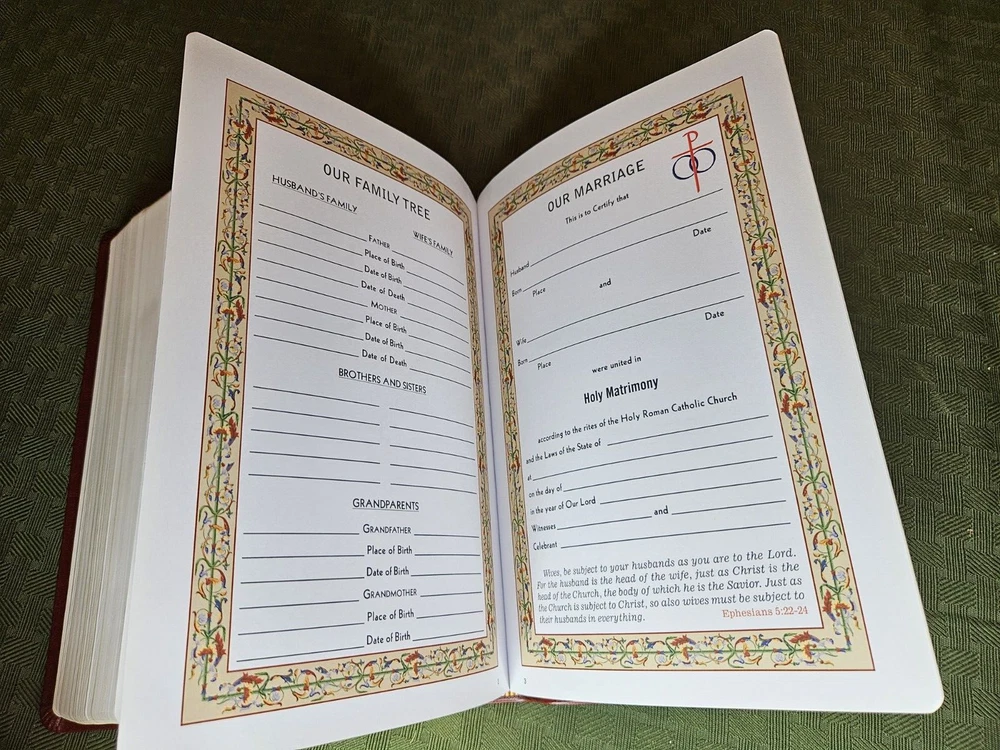 OUR FAMILY TREE
HUSBAND'S FAMILY
WIFE'S FAMILY
FATHER
Place of Birth
Date of Birth
Date of Death
MOTHER
Place of Birth
Date of Birth
Date of Death
BROTHERS AND SISTERS
GRANDPARENTS
GRANDFATHER
Place of Birth
Date of Birth
GRANDMOTHER
Place of Birth
Date of Birth
OUR MARRIAGE
This is to Certify that
Husband
Born Place Date
and
Wife
Born Place Date
were united in
Holy Matrimony
according to the rites of the Holy Roman Catholic Church
and the Laws of the State of
at
on the day of
in the year of Our Lord
Witnesses and
Celebrant
Wives, be subject to your husbands as you are to the Lord.
For the husband is the head of the wife, just as Christ is the
head of the Church, the body of which he is the Savior. Just as
the Church is subject to Christ, so also wives must be subject to
their husbands in everything.
Ephesians 5:22-24